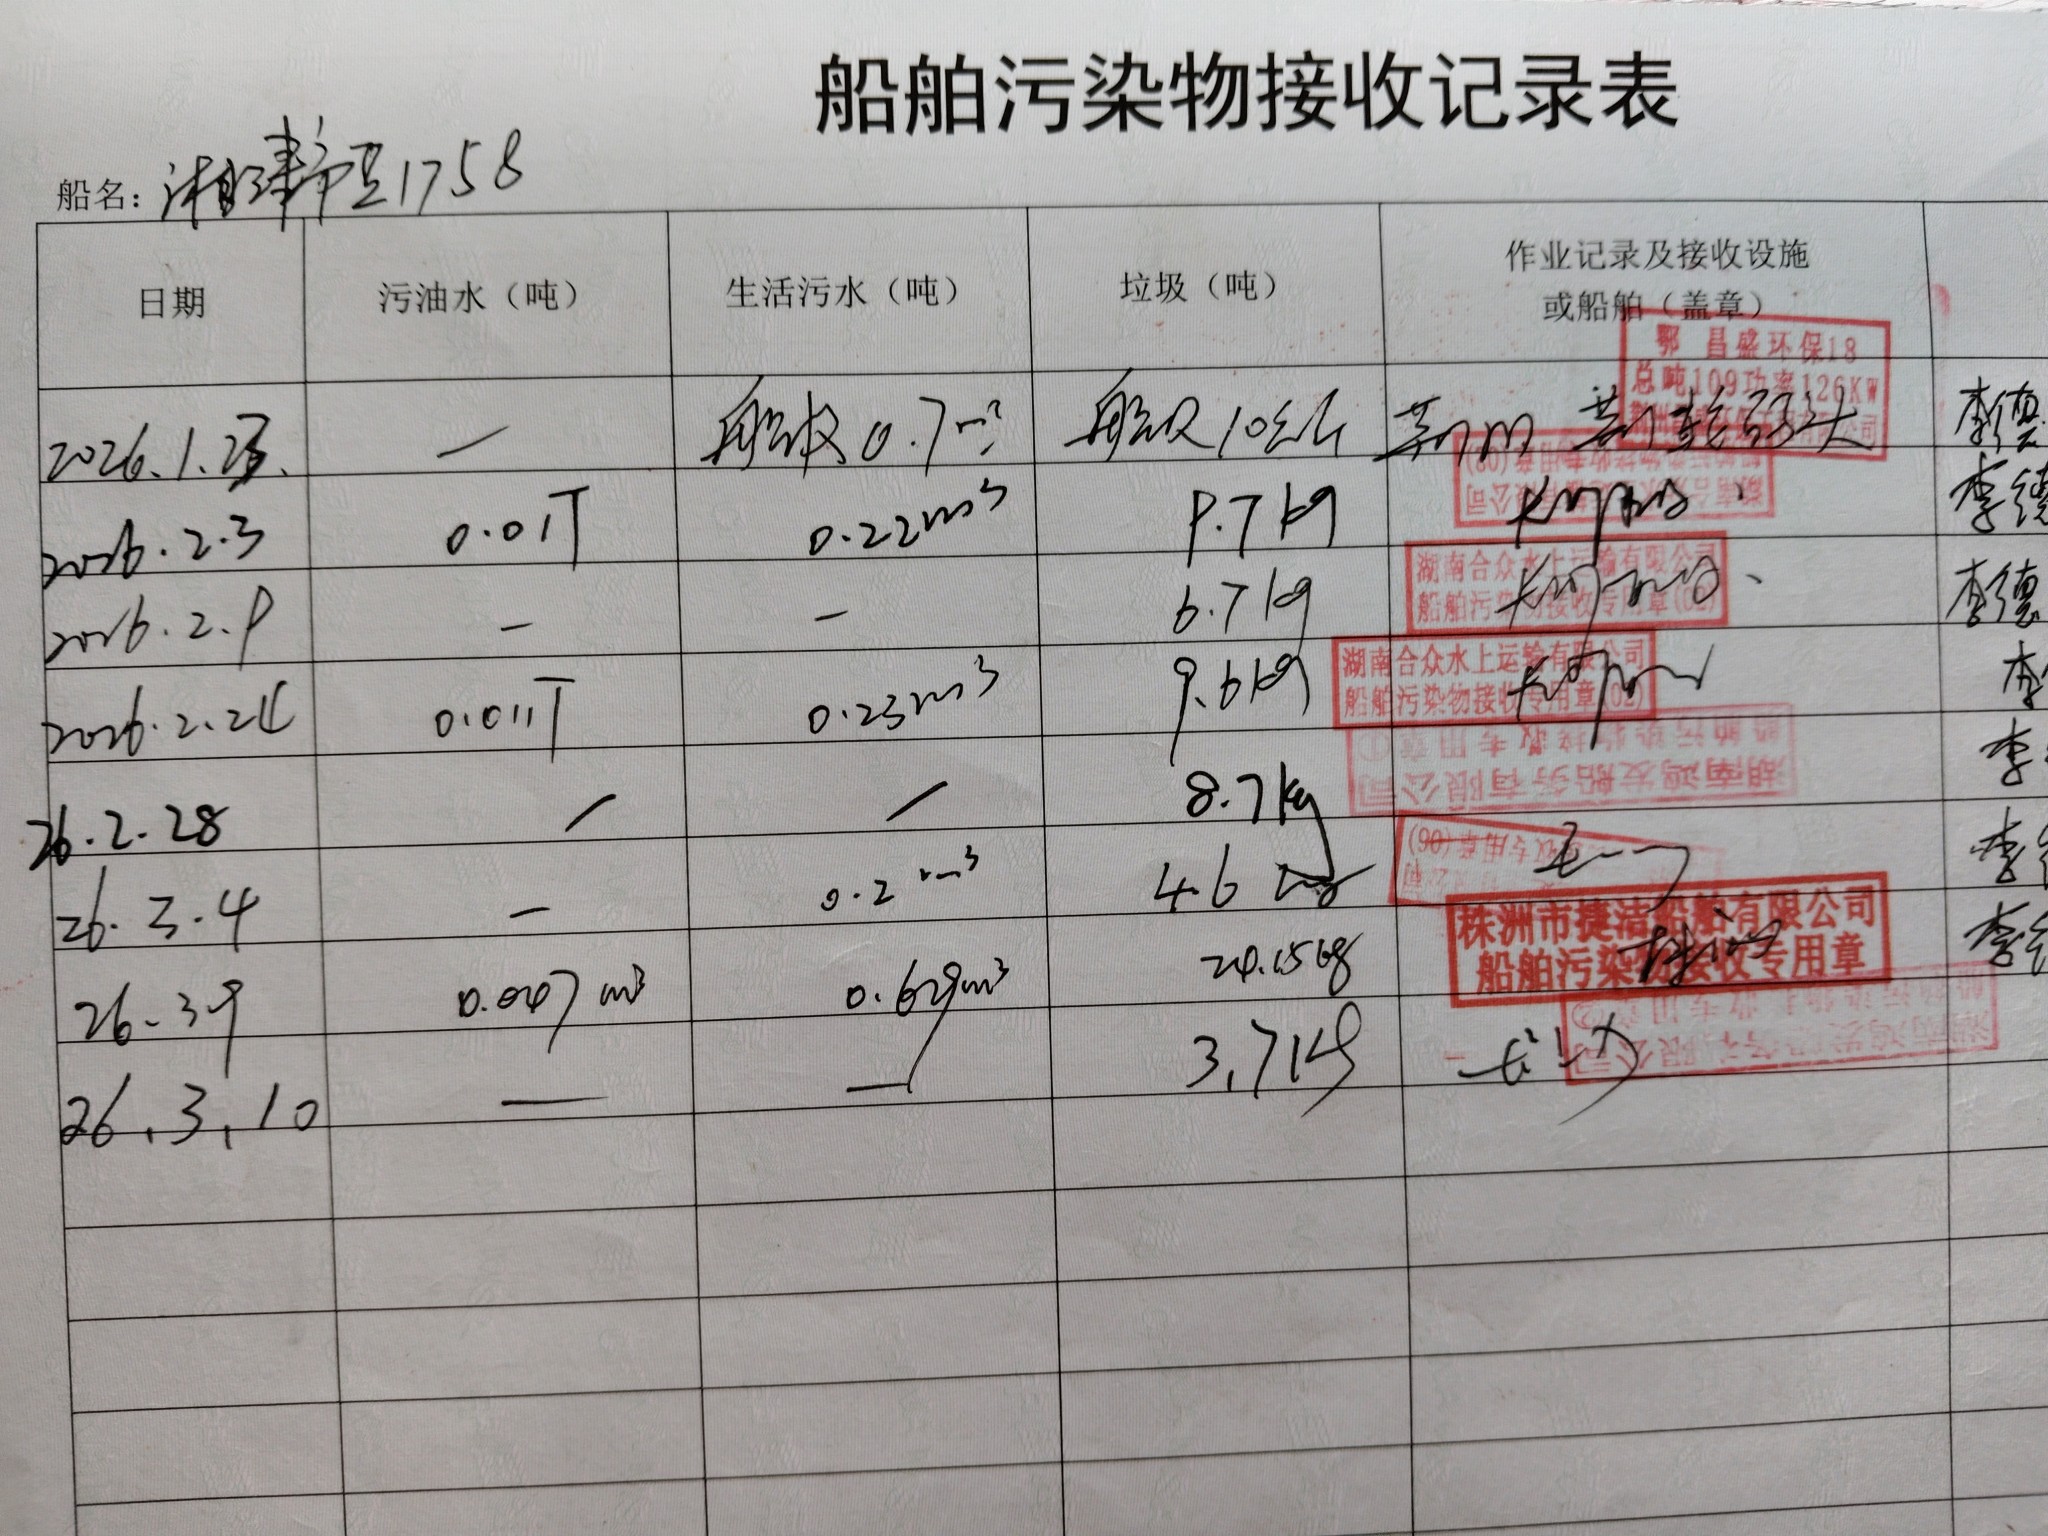 船舶污染物接收记录表
船名: 湘 1758
日期 污油水（吨） 生活污水（吨） 垃圾（吨） 作业记录及接收设施
或船舶（盖章）
鄂 昌盛环保18
总吨109功率126KW
2026.1.23. — 船收0.7m³ 船收10公斤 荆州 码头 李德
2026.2.3 0.01T 0.22m³ 9.7kg 李德
湖南合众水上运输有限公司
船舶污染物接收专用章(02)
2026.2.9 — — 6.7kg 李德
湖南合众水上运输有限公司
船舶污染物接收专用章(02)
2026.2.24 0.011T 0.23m³ 9.6kg 李
湖南鸿发船务有限公司
船舶污染物接收专用章①
26.2.28 / / 8.7kg 李
26.3.4 — 0.2m³ 4.6kg 李
株洲市捷洁船舶有限公司
船舶污染物接收专用章
26.3.9 0.047m³ 0.629m³ 24.15kg 株洲 李
26.3.10 — — 3.7kg